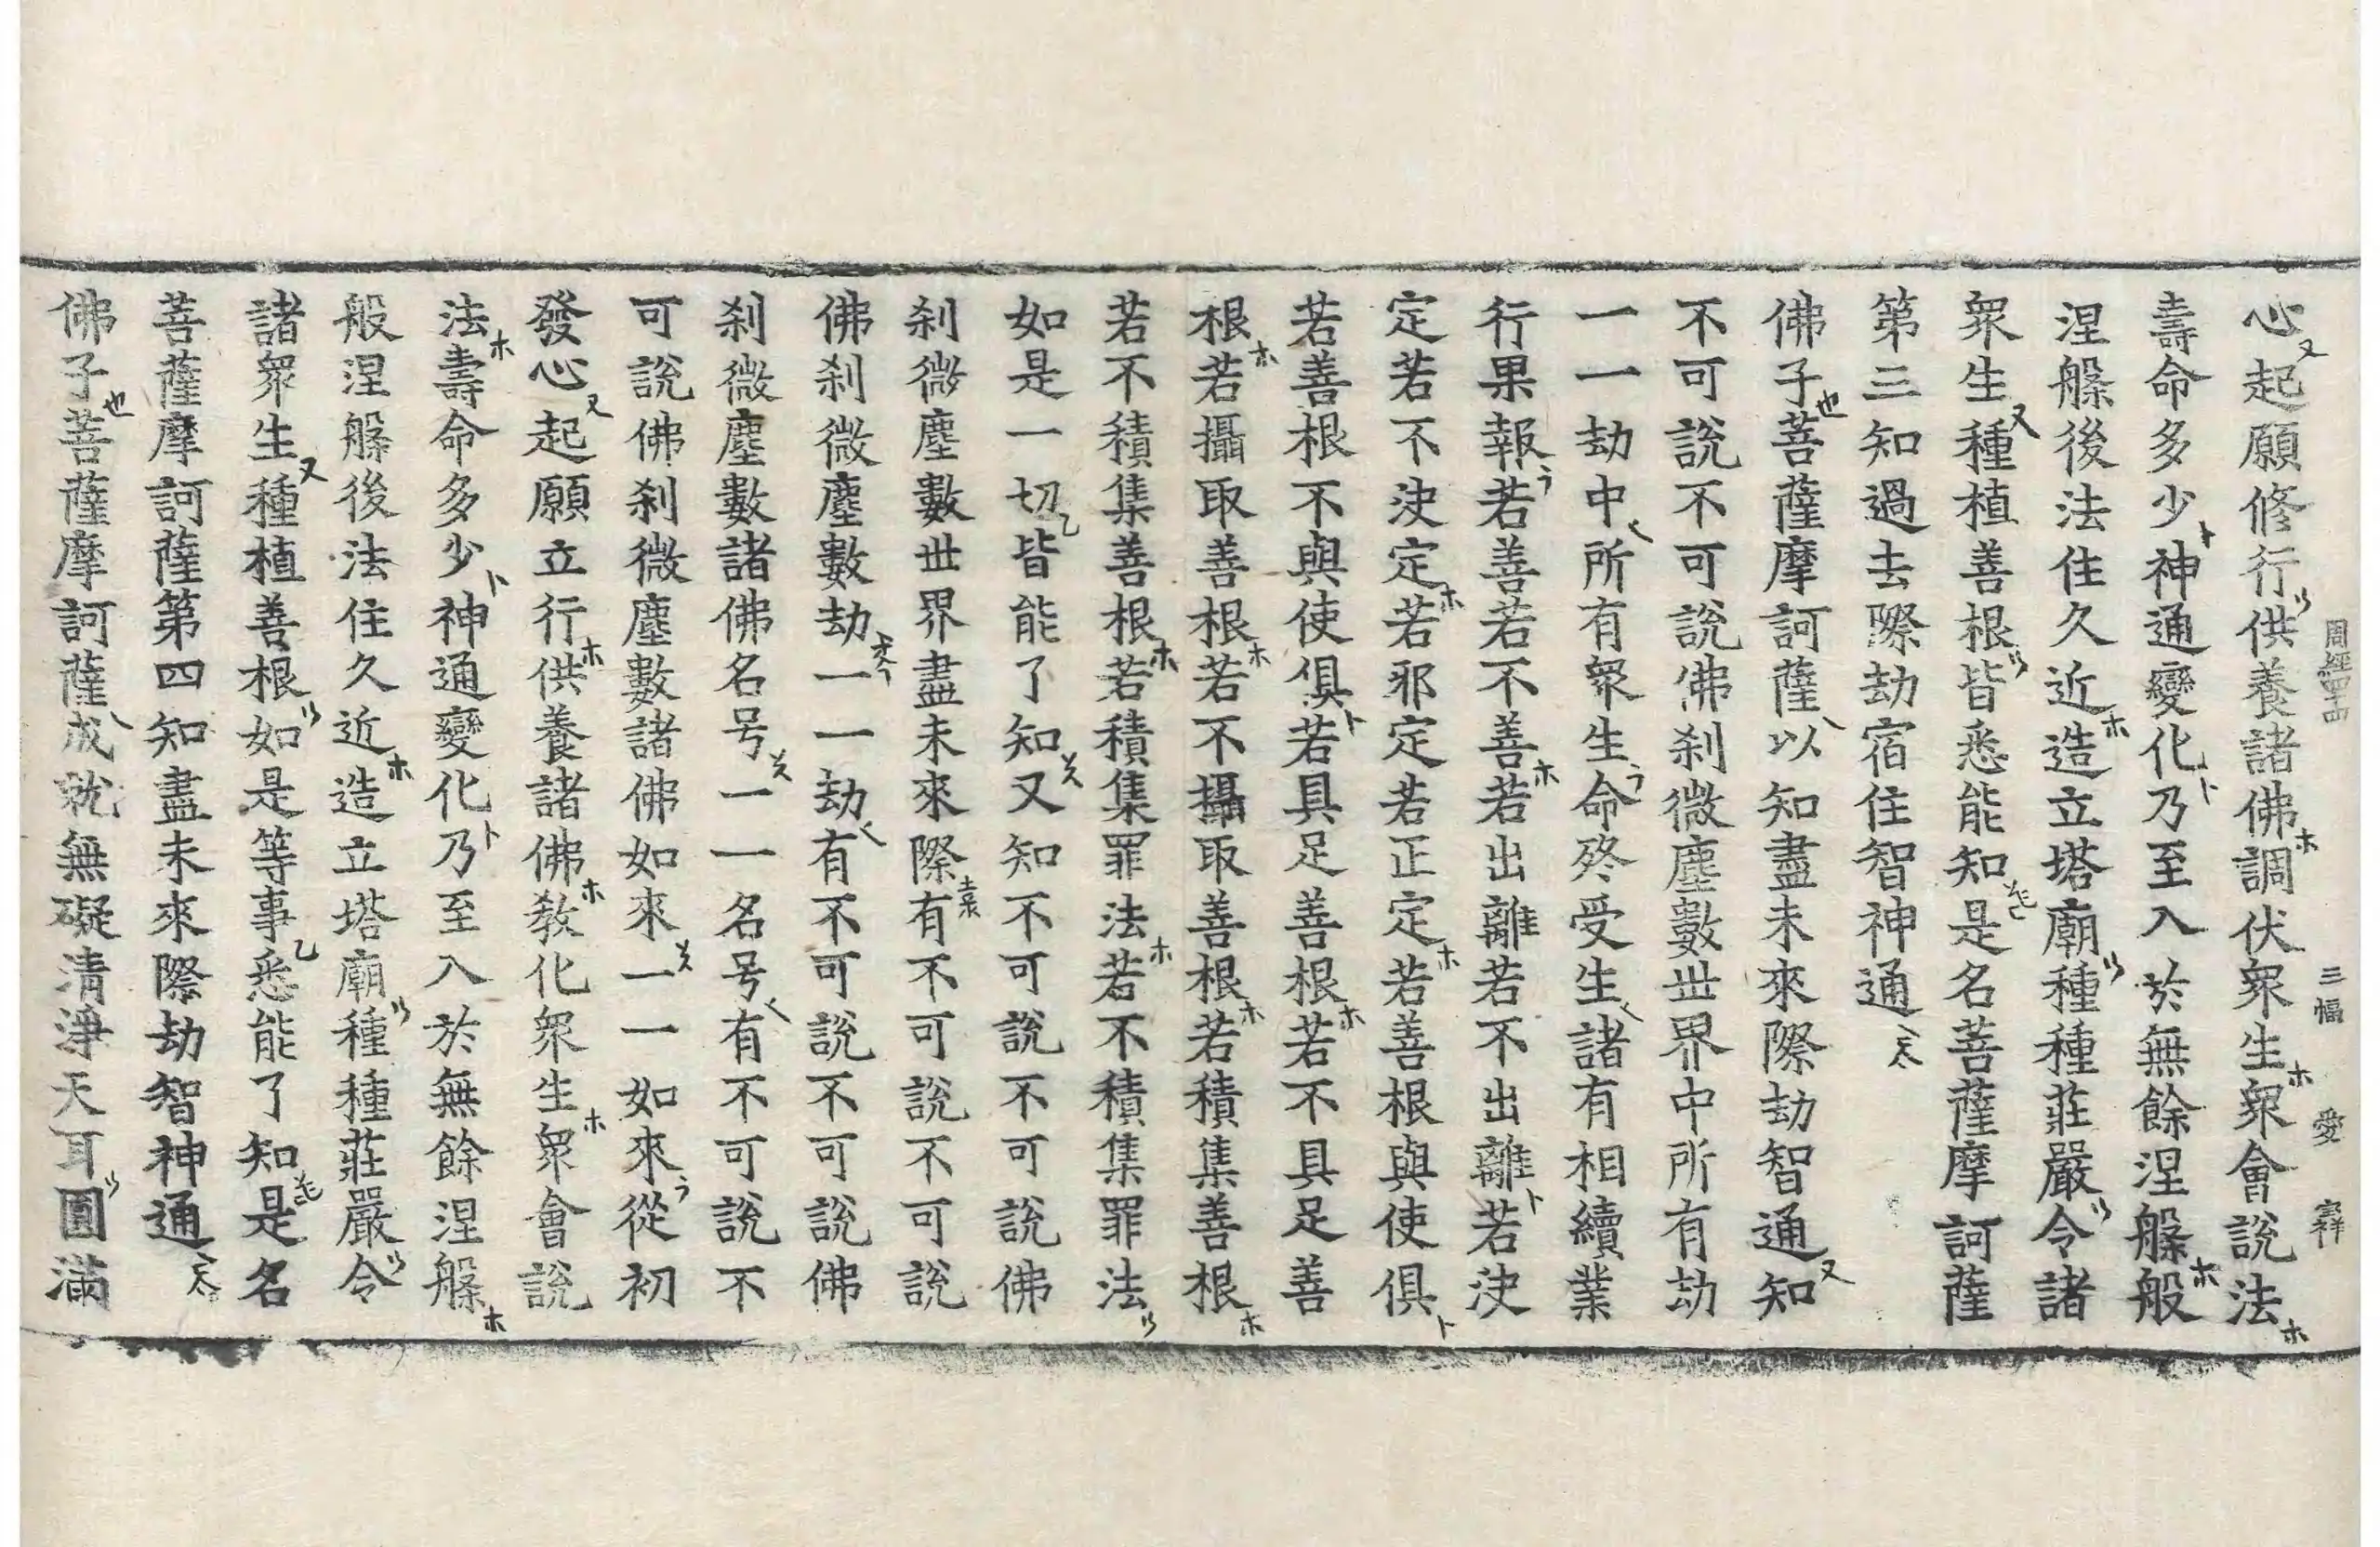 周經四十四 三幅 愛 宲
心起願修行供養諸佛調伏衆生衆會說法
壽命多少神通變化乃至入於無餘涅槃般
涅槃後法住久近造立塔廟種種莊嚴令諸
衆生種植善根皆悉能知是名菩薩摩訶薩
第三知過去際劫宿住智神通
佛子菩薩摩訶薩以知盡未來際劫智通知
不可說不可說佛刹微塵數世界中所有劫
一一劫中所有衆生命終受生諸有相續業
行果報若善若不善若出離若不出離若決
定若不決定若邪定若正定若善根與使俱
若善根不與使俱若具足善根若不具足善
根若攝取善根若不攝取善根若積集善根
若不積集善根若積集罪法若不積集罪法
如是一切皆能了知又知不可說不可說佛
刹微塵數世界盡未來際有不可說不可說
佛刹微塵數劫一一劫有不可說不可說佛
刹微塵數諸佛名号一一名号有不可說不
可說佛刹微塵數諸佛如來一一如來從初
發心起願立行供養諸佛教化衆生衆會說
法壽命多少神通變化乃至入於無餘涅槃
般涅槃後法住久近造立塔廟種種莊嚴令
諸衆生種植善根如是等事悉能了知是名
菩薩摩訶薩第四知盡未來際劫智神通
佛子菩薩摩訶薩成就無礙清淨天耳圓滿